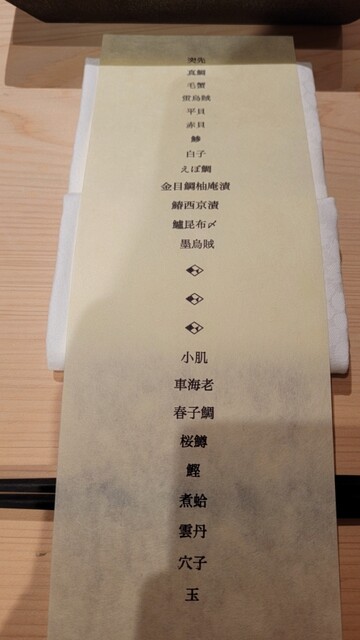 突先
真鯛
毛蟹
蛍烏賊
平貝
赤貝
鯵
白子
えぼ鯛
金目鯛柚庵漬
鰆西京漬
鱸昆布〆
墨烏賊
小肌
車海老
春子鯛
桜鱒
鰹
煮蛤
雲丹
穴子
玉